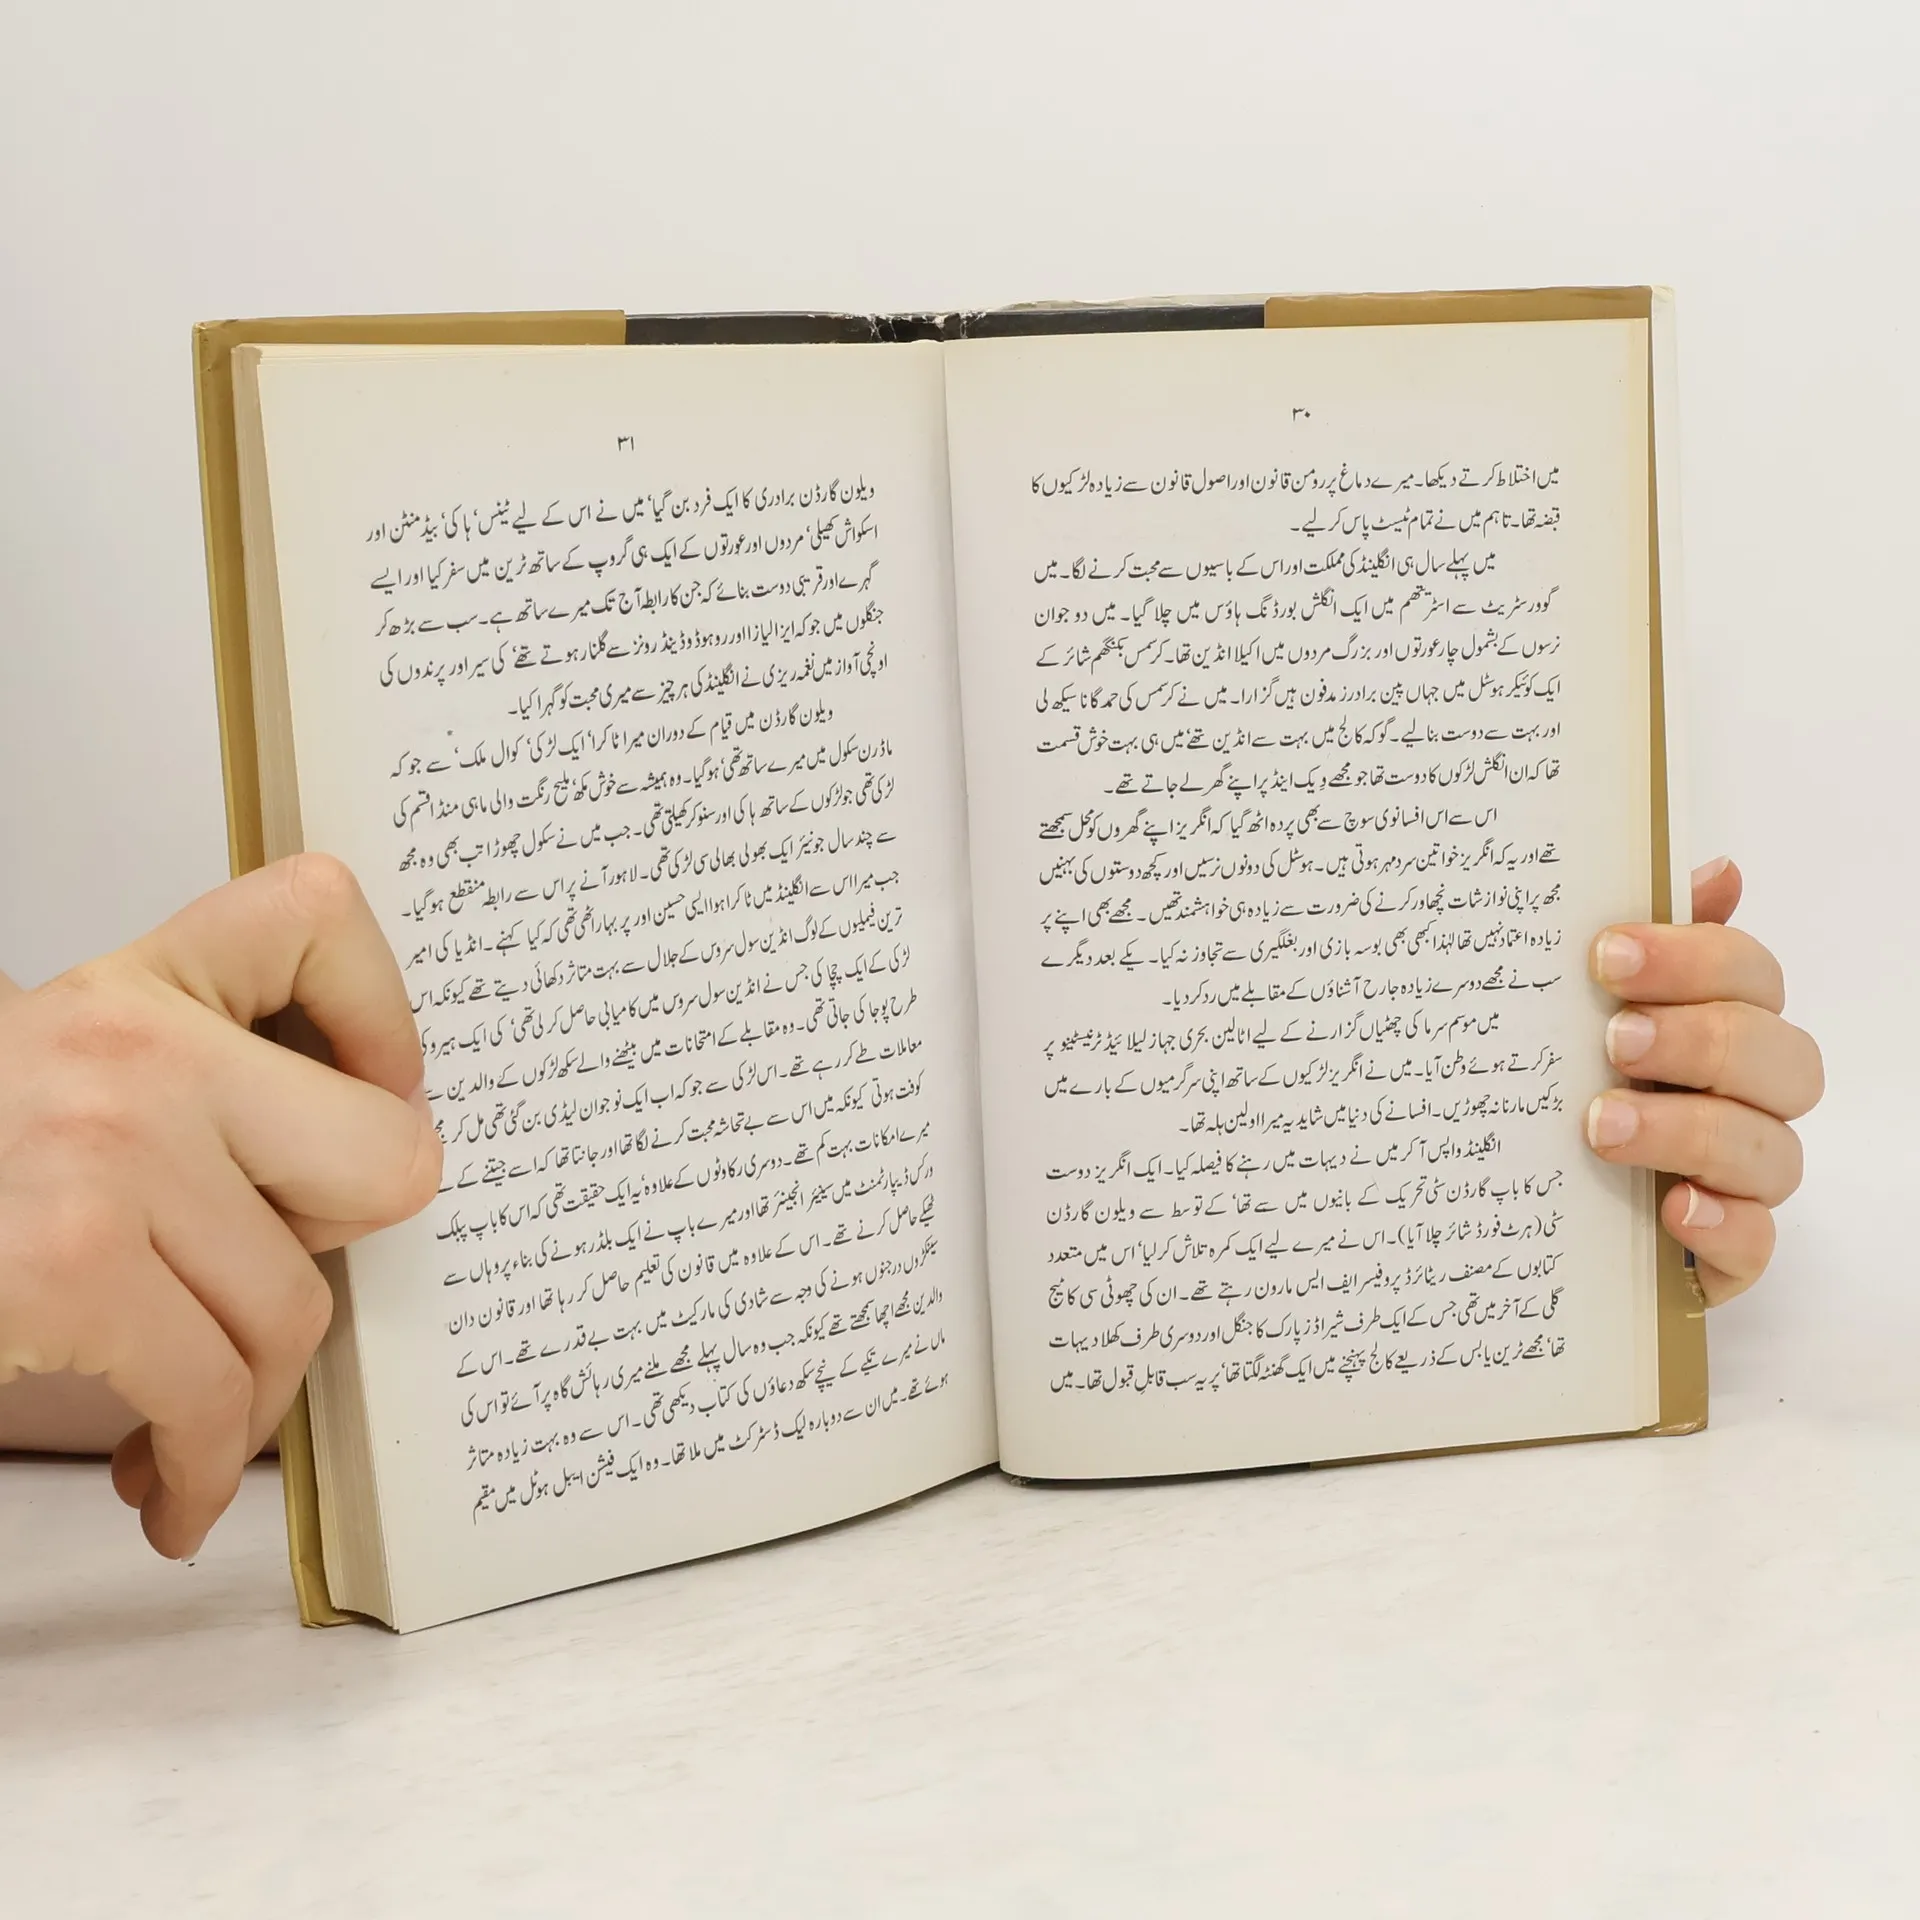 ۳۰
میں اختلاط کرتے دیکھا۔ میرے دماغ پر رومن قانون اور اصول قانون سے زیادہ لڑکیوں کا
قبضہ تھا۔ تاہم میں نے تمام ٹیسٹ پاس کر لیے۔
میں پہلے سال ہی انگلینڈ کی مملکت اور اس کے باسیوں سے محبت کرنے لگا۔ میں
گوور سٹریٹ سے اسٹریتھم میں ایک انگلش بورڈنگ ہاؤس میں چلا گیا۔ میں دو جوان
نرسوں کے بشمول چار عورتوں اور بزرگ مردوں میں اکیلا انڈین تھا۔ کرسمس بکنگھم شائر کے
ایک کوئیکر ہوسٹل میں جہاں پین برادرز مدفون ہیں گزارا۔ میں نے کرسمس کی حمد گانا سیکھ لی
اور بہت سے دوست بنا لیے۔ گو کہ کالج میں بہت سے انڈین تھے‘ میں ہی بہت خوش قسمت
تھا کہ ان انگلش لڑکوں کا دوست تھا جو مجھے ویک اینڈ پر اپنے گھر لے جاتے تھے۔
اس سے اس افسانوی سوچ سے بھی پردہ اٹھ گیا کہ انگریز اپنے گھروں کو محل سمجھتے
تھے اور یہ کہ انگریز خواتین سرد مہر ہوتی ہیں۔ ہوسٹل کی دونوں نرسیں اور کچھ دوستوں کی بہنیں
مجھ پر اپنی نوازشات نچھاور کرنے کی ضرورت سے زیادہ ہی خواہشمند تھیں۔ مجھے بھی اپنے پر
زیادہ اعتماد نہیں تھا لہٰذا کبھی بھی بوسہ بازی اور بغلگیری سے تجاوز نہ کیا۔ یکے بعد دیگرے
سب نے مجھے دوسرے زیادہ جارح آشناؤں کے مقابلے میں رد کر دیا۔
میں موسم سرما کی چھٹیاں گزارنے کے لیے اٹالین بحری جہاز لیلائیڈ ٹرنیسٹینو پر
سفر کرتے ہوئے وطن آیا۔ میں نے انگریز لڑکیوں کے ساتھ اپنی سرگرمیوں کے بارے میں
بڑکیں مارنا نہ چھوڑیں۔ افسانے کی دنیا میں شاید یہ میرا اولین ہلہ تھا۔
انگلینڈ واپس آ کر میں نے دیہات میں رہنے کا فیصلہ کیا۔ ایک انگریز دوست
جس کا باپ گارڈن سٹی تحریک کے بانیوں میں سے تھا‘ کے توسط سے ویلون گارڈن
سٹی (ہرٹ فورڈ شائر چلا آیا)۔ اس نے میرے لیے ایک کمرہ تلاش کر لیا‘ اس میں متعدد
کتابوں کے مصنف ریٹائرڈ پروفیسر ایف ایس مارون رہتے تھے۔ ان کی چھوٹی سی کاٹیج
گلی کے آخر میں تھی جس کے ایک طرف شیراڈز پارک کا جنگل اور دوسری طرف کھلا دیہات
تھا‘ مجھے ٹرین یا بس کے ذریعے کالج پہنچنے میں ایک گھنٹہ لگتا تھا‘ پر یہ سب قابلِ قبول تھا۔ میں
۳۱
ویلون گارڈن برادری کا ایک فرد بن گیا‘ میں نے اس کے لیے ٹینس‘ ہاکی‘ بیڈمنٹن اور
اسکواش کھیلی‘ مردوں اور عورتوں کے ایک ہی گروپ کے ساتھ ٹرین میں سفر کیا اور ایسے
گہرے اور قریبی دوست بنائے کہ جن کا رابطہ آج تک میرے ساتھ ہے۔ سب سے بڑھ کر
جنگلوں میں جو کہ ایزالیاز اور روہوڈوڈینڈرونز سے گلنار ہوتے تھے‘ کی سیر اور پرندوں کی
اونچی آواز میں نغمہ ریزی نے انگلینڈ کی ہر چیز سے میری محبت کو گہرا کیا۔
ویلون گارڈن میں قیام کے دوران میرا ٹاکرا‘ ایک لڑکی‘ کوال ملک‘ سے جو کہ
ماڈرن سکول میں میرے ساتھ تھی‘ ہو گیا۔ وہ ہمیشہ سے خوش مکھ‘ ملیح رنگت والی ماہی منڈا قسم کی
لڑکی تھی جو لڑکوں کے ساتھ ہاکی اور سنوکر کھیلتی تھی۔ جب میں نے سکول چھوڑا تب بھی وہ مجھ
سے چند سال جونیئر ایک بھولی بھالی سی لڑکی تھی۔ لاہور آنے پر اس سے رابطہ منقطع ہو گیا۔
جب میرا اس سے انگلینڈ میں ٹاکرا ہوا ایسی حسین اور پر بہار اٹھی تھی کہ کیا کہنے۔ انڈیا کی امیر
ترین فیملیوں کے لوگ انڈین سول سروس کے جلال سے بہت متاثر دکھائی دیتے تھے کیونکہ اس
لڑکی کے ایک چچا کی جس نے انڈین سول سروس میں کامیابی حاصل کر لی تھی‘ کی ایک ہیرو کی
طرح پوجا کی جاتی تھی۔ وہ مقابلے کے امتحانات میں بیٹھنے والے سکھ لڑکوں کے والدین سے
معاملات طے کر رہے تھے۔ اس لڑکی سے جو کہ اب ایک نوجوان لیڈی بن گئی تھی مل کر
کوفت ہوتی کیونکہ میں اس سے بے تحاشہ محبت کرنے لگا تھا اور جانتا تھا کہ اسے جیتنے کے
میرے امکانات بہت کم تھے۔ دوسری رکاوٹوں کے علاوہ‘ یہ ایک حقیقت تھی کہ اس کا باپ پبلک
ورکس ڈیپارٹمنٹ میں سینیئر انجینئر تھا اور میرے باپ نے ایک بلڈر ہونے کی بناء پر وہاں سے
ٹھیکے حاصل کرنے تھے۔ اس کے علاوہ میں قانون کی تعلیم حاصل کر رہا تھا اور قانون دان
سینکڑوں درجنوں ہونے کی وجہ سے شادی کی مارکیٹ میں بہت بے قدرے تھے۔ اس کے
والدین مجھے اچھا سمجھتے تھے کیونکہ جب وہ سال پہلے مجھے ملنے میری رہائش گاہ پر آئے تو اس کی
ماں نے میرے تکیے کے نیچے سکھ دعاؤں کی کتاب دیکھی تھی۔ اس سے وہ بہت زیادہ متاثر
ہوئے تھے۔ میں ان سے دوبارہ لیک ڈسٹرکٹ میں ملا تھا۔ وہ ایک فیشن ایبل ہوٹل میں مقیم